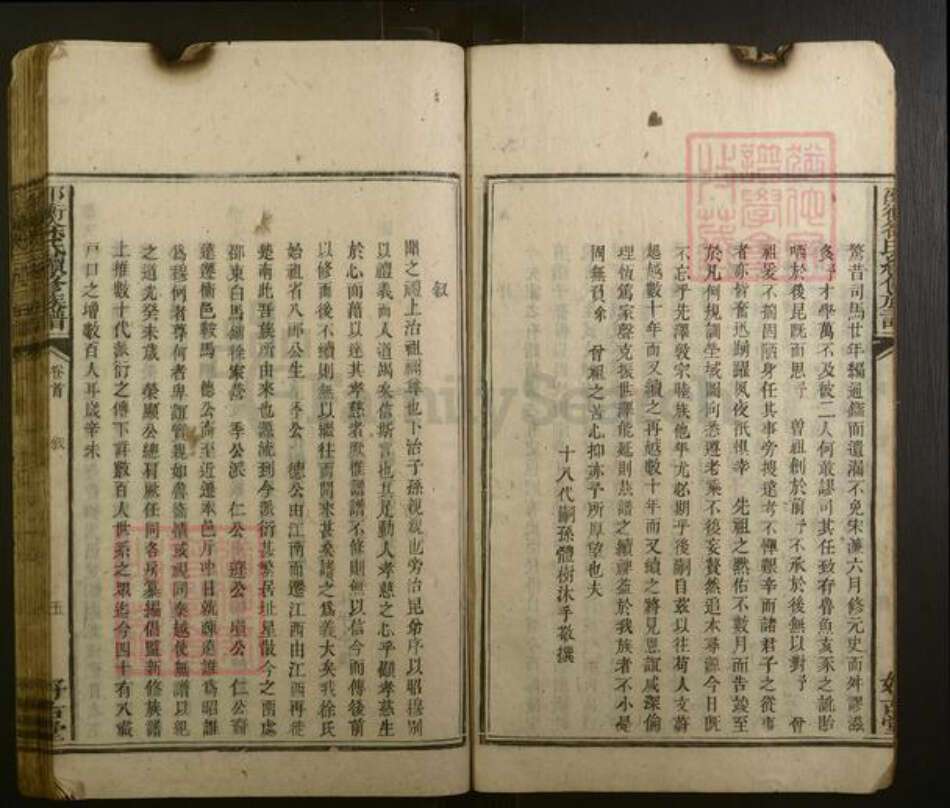 驚昔司馬廿年獨通鑑而遺漏不免宋濂六月修元史而舛謬滋
多予才學萬不及彼二人何敢謬司其任致有魯魚亥豕之訛貽
哂於後昆既而思予 曾祖創於前予不承於後無以對予 曾
祖爰不揣固陋身任其事旁搜遠考不憚艱辛而諸君子之從事
者亦皆奮迅踴躍夙夜祇懼幸 先祖之默佑不數月而告竣至
於凡例規訓塋域圖向悉遵老乘不後妄贅然追本尋源今日既
不忘乎先澤敦宗睦族他年尤必期乎後嗣自茲以往荷人文蔚
起越數十年而又續之再越數十年而又續之將見恩誼咸深倫
理恆篤家聲克振世澤能延則茲譜之續裨益於我族者不小是
固無負余 曾祖之苦心抑亦予所厚望也夫
十八代嗣孫體樹沐手敬撰
叙
聞之禮上治祖禰尊尊也下治子孫親親也旁治昆弟序以昭穆別
以禮義而人道竭矣信斯言也其足動人孝慈之心乎顧孝慈生
於心而藉以達其孝慈者厥惟譜譜不修則無以信今而傳後前
以修而後不續則無以繼往而開來甚矣譜之為義大矣我徐氏
始祖省八郎公生 季公 德公由江南而遷江西由江西再徙
楚南此吾族所由來也源流到今派衍甚繁居址星散今之南處
邵東白馬鋪徐家營 季公派 仁公 公 公 仁公裔
遠遷衡邑鞍馬 德公裔至近遷本邑斤中日就疎遠誰為昭誰
為穆何者尊何者卑誼管親如魯衛情或視同秦越使無譜以紀
之道光癸未歲 榮顯公總肩厥任同各房纂揚倡監新修族譜
上推數十代派衍之傳下詳數百人世系之眾迄今四十有八歲
戶口之增數百人耳歲辛未
徐氏續修族譜
卷首 叙
五
好古堂